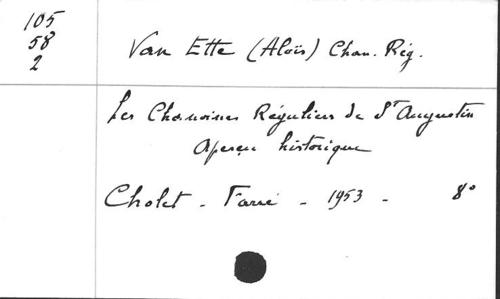 105
58
2
Van Ette (Aloïs) Chan. Rég.
Les Chanoines Réguliers de St Augustin
Aperçu historique
Cholet - Farré - 1953 - 8°